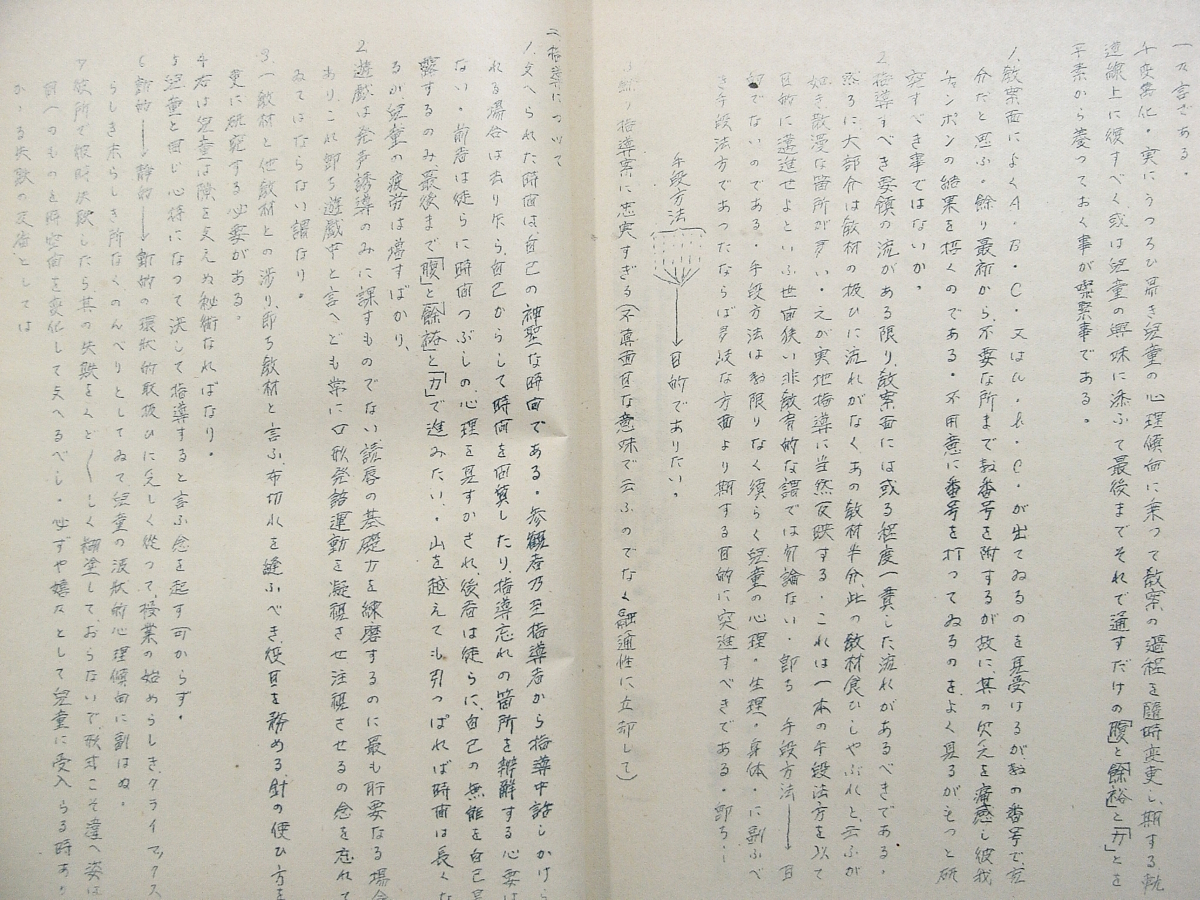 一文言である。
千変萬化・実にうつろひ易き児童の心理傾向に乗って教案の過程を随時変更し、期する軌
道線上に復すべく或は児童の興味に添ふて最後までそれで通すだけの「腹」と「餘裕」と「力」とを
平素から養っておく事が喫緊事である。
1. 教案面によくA・B・C・又はa・b・c・が出てゐるのを見受けるが、数の番号で充
分だと思ふ・餘り最初から、不要な所まで数番号を附するが故に、其の欠乏を痛感し彼我
チャンポンの結果を招くのである・不用意に番号を打ってゐるのをよく見るがもっと研
究すべき事ではないか。
2. 指導すべき要領の流がある限り教案面には或る程度一貫した流れがあるべきである・
然るに大部分は教材の扱ひに流れがなく、あの教材半分、此の教材食ひしやぶれと云ふが
如き散漫な箇所が多い・之が実地指導に当然反映する・これは一本の手段法方を以て
目的に邁進せよといふ世間狭い非教育的な謂では勿論ない・即ち 手段方法→目
的でないのである・手段方法は数限りなく須らく児童の心理・生理・身体・に副ふべ
き手段法方であつたならば多岐な方面より期する目的に突進すべきである・即ち・
手段方法→目的でありたい。
3. 餘り指導案に忠実すぎる(不真面目な意味で云ふのでなく融通性に立却して)
二 指導について
1. 文へられた時间は自己の神聖な時间である・参観者乃至指導者から指導中話しかけら
れる場合は去り乍ら、自己からして時间を回算したり、指導忘れの箇所を辨解する心要は
ない・前者は徒らに時间つぶしの心理を見すかされ、後者は徒らに、自己の無能を自己
するのみ、最後まで「腹」と「餘裕」と「力」で進みたい・山を越えても引っぱれば時间は長くな
るが児童の疲労は増すばかり、
2. 遊戯は発声誘導のみに課すものでない、読唇の基礎力を練磨するのに最も肝要なる場合
あり、これ即ち遊戯中と言へども常に口形発語運動を凝視させ注視させるの念を忘れて
ゐてはならない謂なり。
3. 一教材と他教材との渉り、即ち教材と言ふ布切れを縫ふべき役目を務める針の使ひ方を
更に研究する必要がある。
4. 右は児童は隙を文えぬ秘術なればなり。
5. 児童と同じ心持になつて決して指導すると言ふ念を起す可からず。
6. 動的→静的→動的の環状的取扱ひに乏しく従つて、授業の始めらしき、クライマックス
らしき末らしき所なくのんべりとしてゐて児童の波状的心理傾向に副はぬ。
7. 彼所で彼時決敗したら、其の失敗をくど〱しく糊塗しておらないで、形すこそ違へ姿は
同一のものを時空间を変化して文へるべし・必ずや嬉々として児童に受入らる時あり
かゝる失敗の反應としては